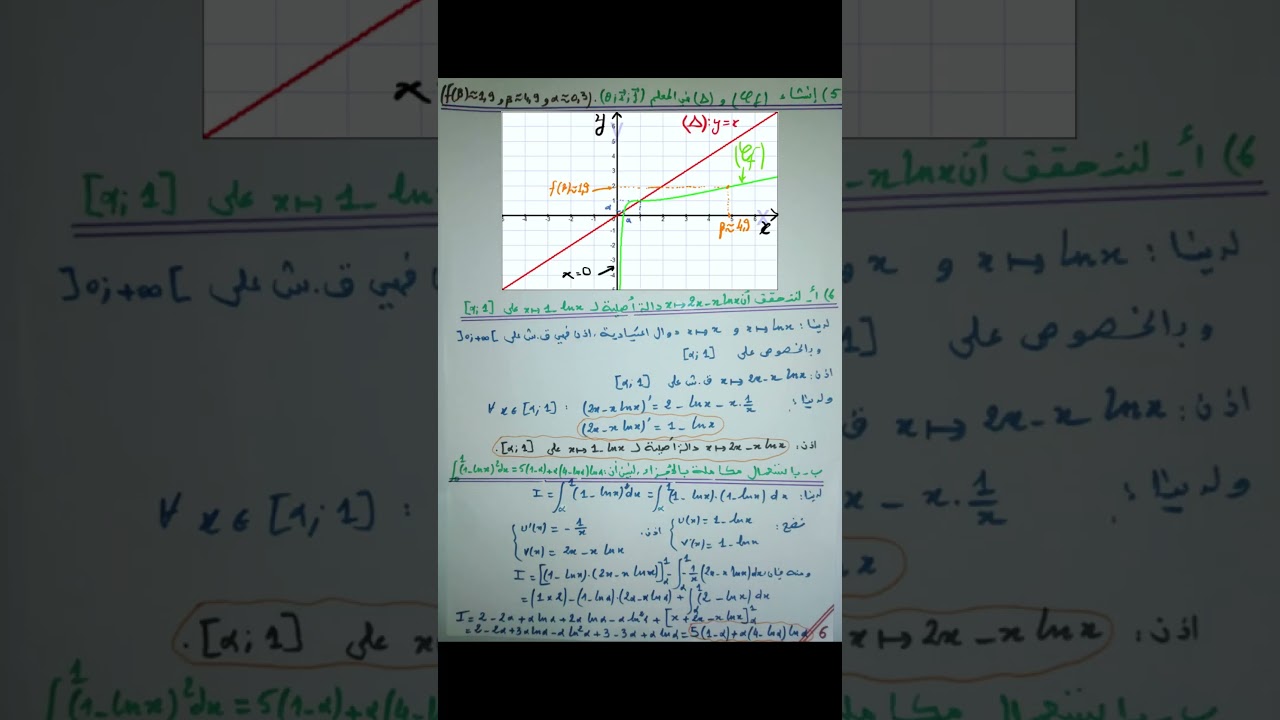 5) إنشاء (𝒞f) و (Δ) في المعلم (O;i⃗;j⃗). (f(β)≈1,9 و β≈4,9 و α≈0,3)
y
(Δ): y=x
(𝒞f)
f(β)≈1,9
α
α
β≈4,9
x
x=0
6) أ ـ لنتحقق أن x↦2x-x lnx دالة أصلية لـ x↦1-lnx على [α;1]
لدينا: x↦lnx و x↦x دوال اعتيادية، اذن فهي ق.ش على ]0;+∞[
وبالخصوص على [α;1]
اذن: x↦2x-x lnx ق.ش على [α;1]
ولدينا: ∀x∈[α;1] : (2x-x lnx)' = 2-lnx-x.1/x
(2x-x lnx)' = 1-lnx
اذن: x↦2x-x lnx دالة أصلية لـ x↦1-lnx على [α;1].
ب ـ باستعمال مكاملة بالأجزاء، لنبين أن: ∫_α^1 (1-lnx)²dx = 5(1-α)+α(4-lnα)lnα
لدينا: I = ∫_α^1 (1-lnx)²dx = ∫_α^1 (1-lnx).(1-lnx) dx
نضع: { U(x)=1-lnx اذن: { U'(x) = -1/x
V'(x)=1-lnx V(x) = 2x-x lnx
ومنه فإن: I = [(1-lnx).(2x-x lnx)]_α^1 - ∫_α^1 -1/x (2x-x lnx)dx
= (1×2)-(1-lnα).(2α-αlnα) + ∫_α^1 (2-lnx) dx
I = 2-2α+αlnα+2αlnα-αln²α + [x+2x-x lnx]_α^1
= 2-2α+3αlnα-αln²α+3-3α+αlnα = 5(1-α)+α(4-lnα)lnα
6